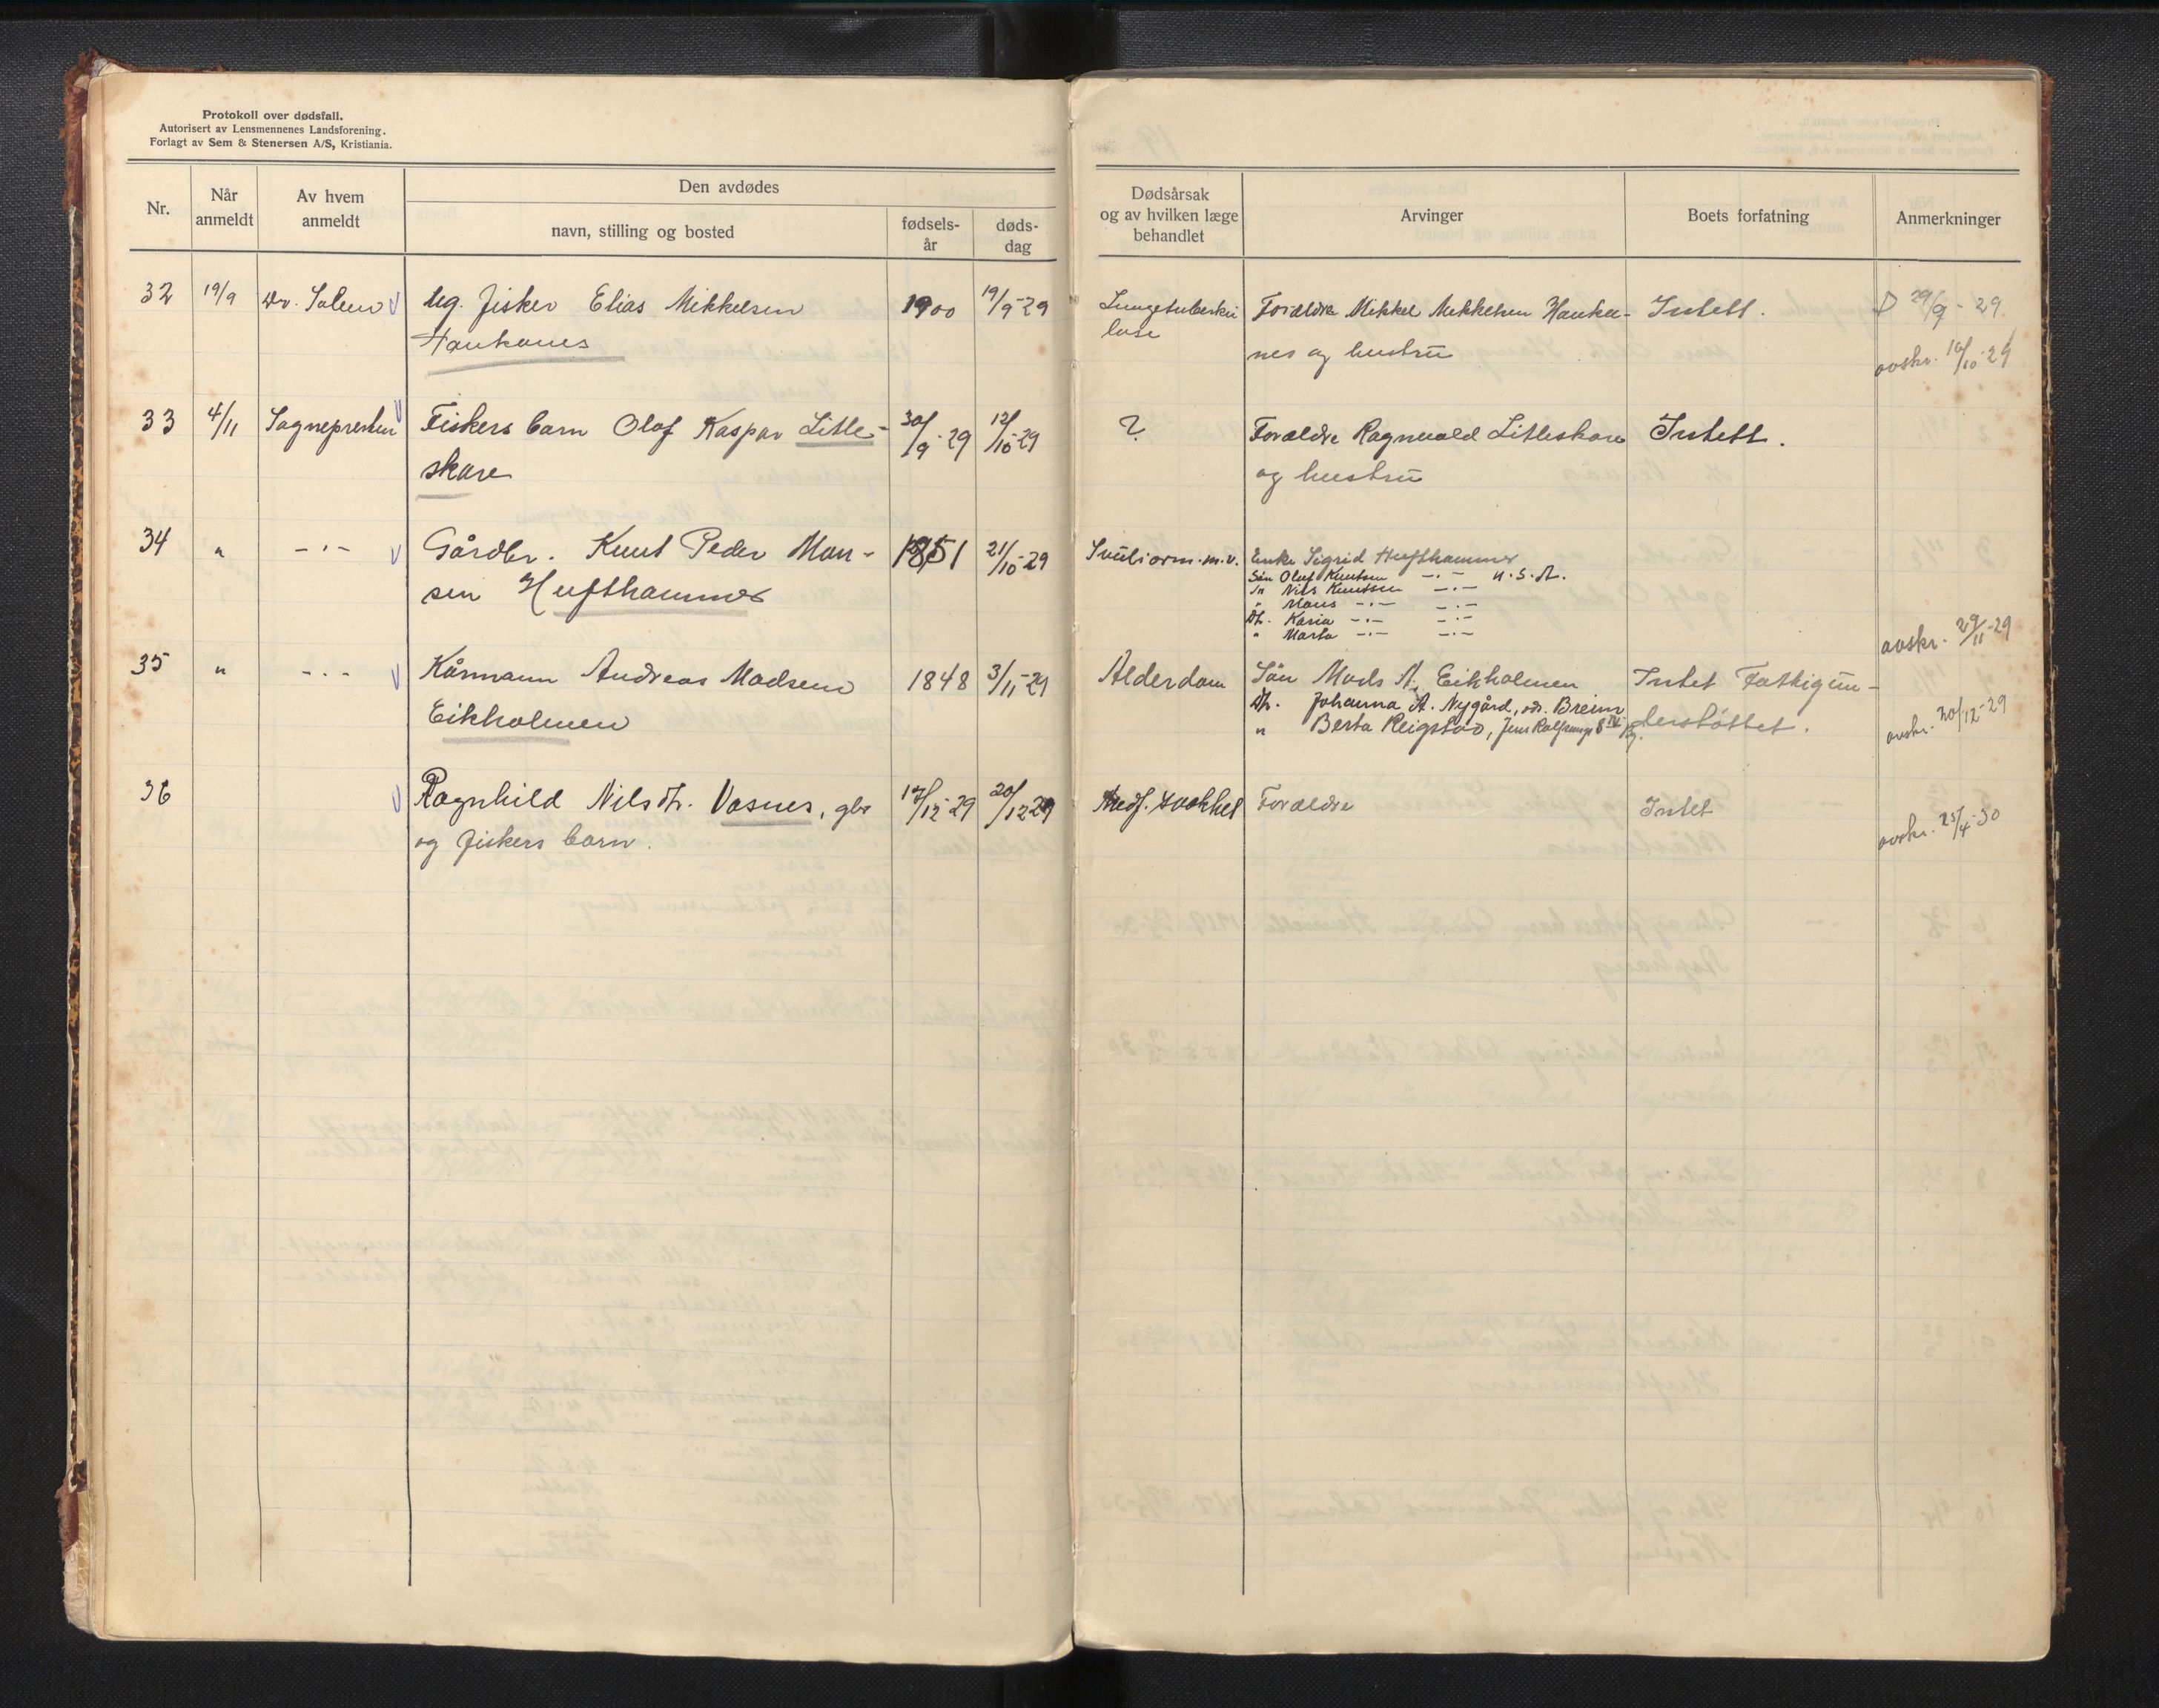 Protokoll over dødsfall.
Autorisert av Lensmennenes Landsforening.
Forlagt av Sem & Stenersen A/S, Kristiania.
Nr.
Når anmeldt
Av hvem anmeldt
Den avdødes
navn, stilling og bosted
fødsels-år
døds-dag
Dødsårsak og av hvilken læge behandlet
Arvinger
Boets forfatning
Anmerkninger
32 19/9 Dr. Salen Ug. fisker Elias Mikkelsen 1900 19/9-29 Lungetuberku Forældre Mikkel Mikkelsen Hauka- Intett. 29/9-29
Haukanes lose nes og hustru avskr. 16/10-29
33 4/11 Sognepresten Fiskers barn Olaf Kaspar Litle- 30/9-29 12/10-29 ? Forældre Ragnvald Litleskare Intett.
skare og hustru
34 " -"- Gårdbr. Knut Peder Mon- 1851 21/10-29 m.v. Enke Sigrid Hufthammer
sen Hufthammer Søn Oluf Knutsen -"- U.S.A.
Nils Knutsen -"-
" Mons -"- -"-
Dt. Karia -"- -"-
" Marta -"- -"- avskr. 29/11-29
35 " -"- Kårmann Andreas Madsen 1848 3/11-29 Alderdom Søn Mads A. Eikholmen Intet Fattigun-
Eikholmen Dt. Johanna A. Nygård, adr. Breim derstøttet. avskr. 30/12-29
" Berta Reigstad, Jens
36 Ragnhild Nilsdt. Vasnes, gbr 17/12-29 20/12 29 Medf. svakhet Forældre Intet avskr. 25/4-30
og fiskers barn.